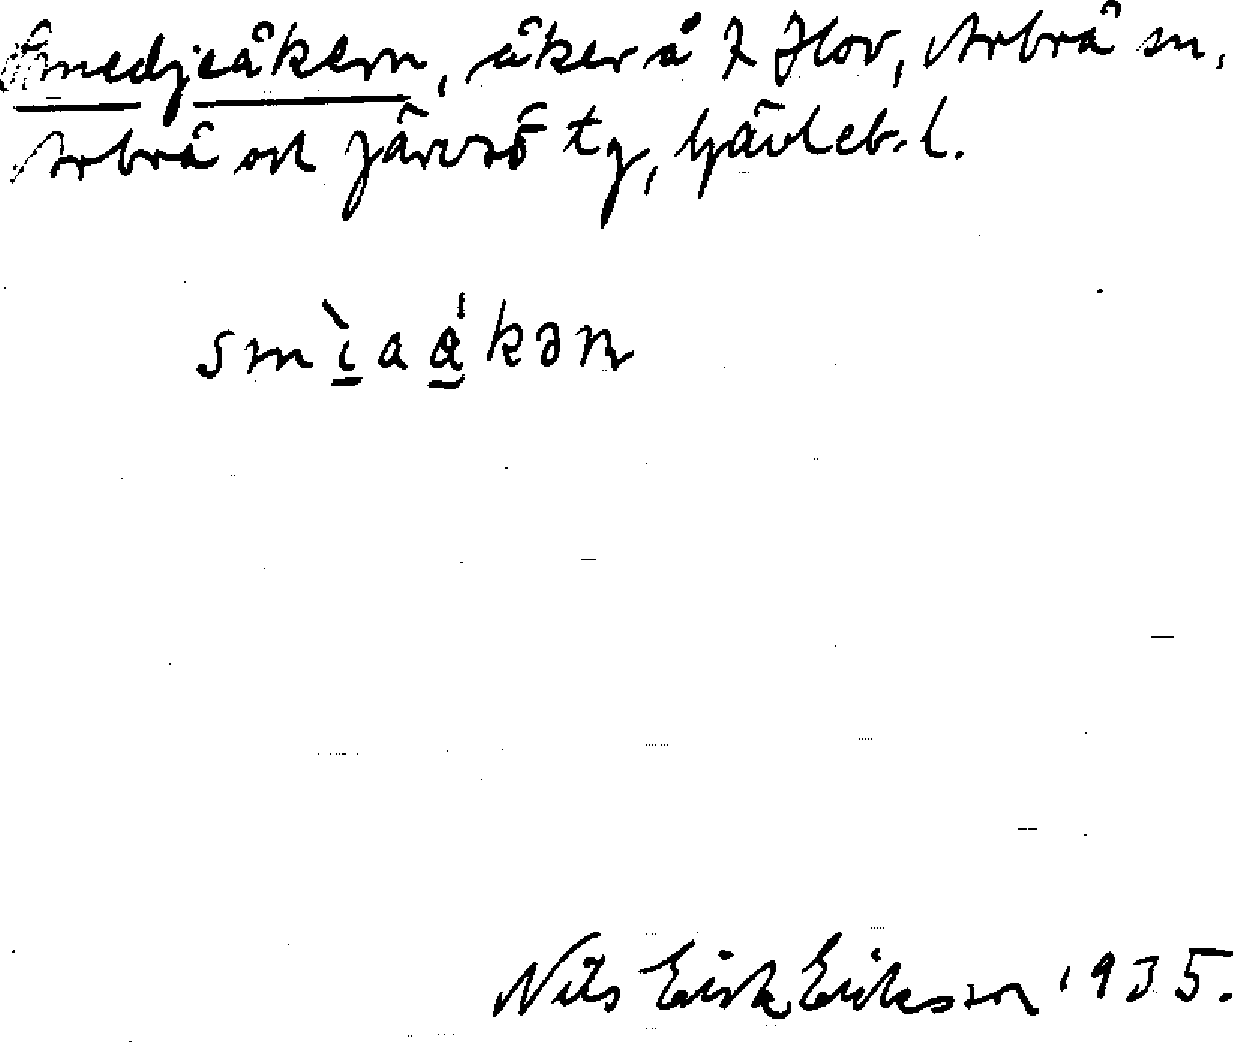 Smedjeåkern, åker å 7 Flov, Arbrå sn,
Arbrå och Järvsö tg, Gävleb. l.
smìaákəɳ
Nils Erik Eriksson 1935.